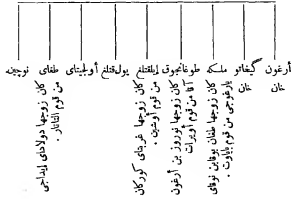 أرغون
خان
گيخاتو
خان
ملكه
كان زوجها طغان بوقا بن نوقاى
يارغوجى من قوم باياوت .
طوغانجوق
كان زوجها نوروز بن أرغون
آقا من قوم أويرات
إيلقتلغ
كان زوجها غربتاى كوركان
من قوم أوشين .
يول قتلغ
أولجيتاى
طغاى
كان زوجها دولاداى إيداجى
من قوم التاتار .
نوجين